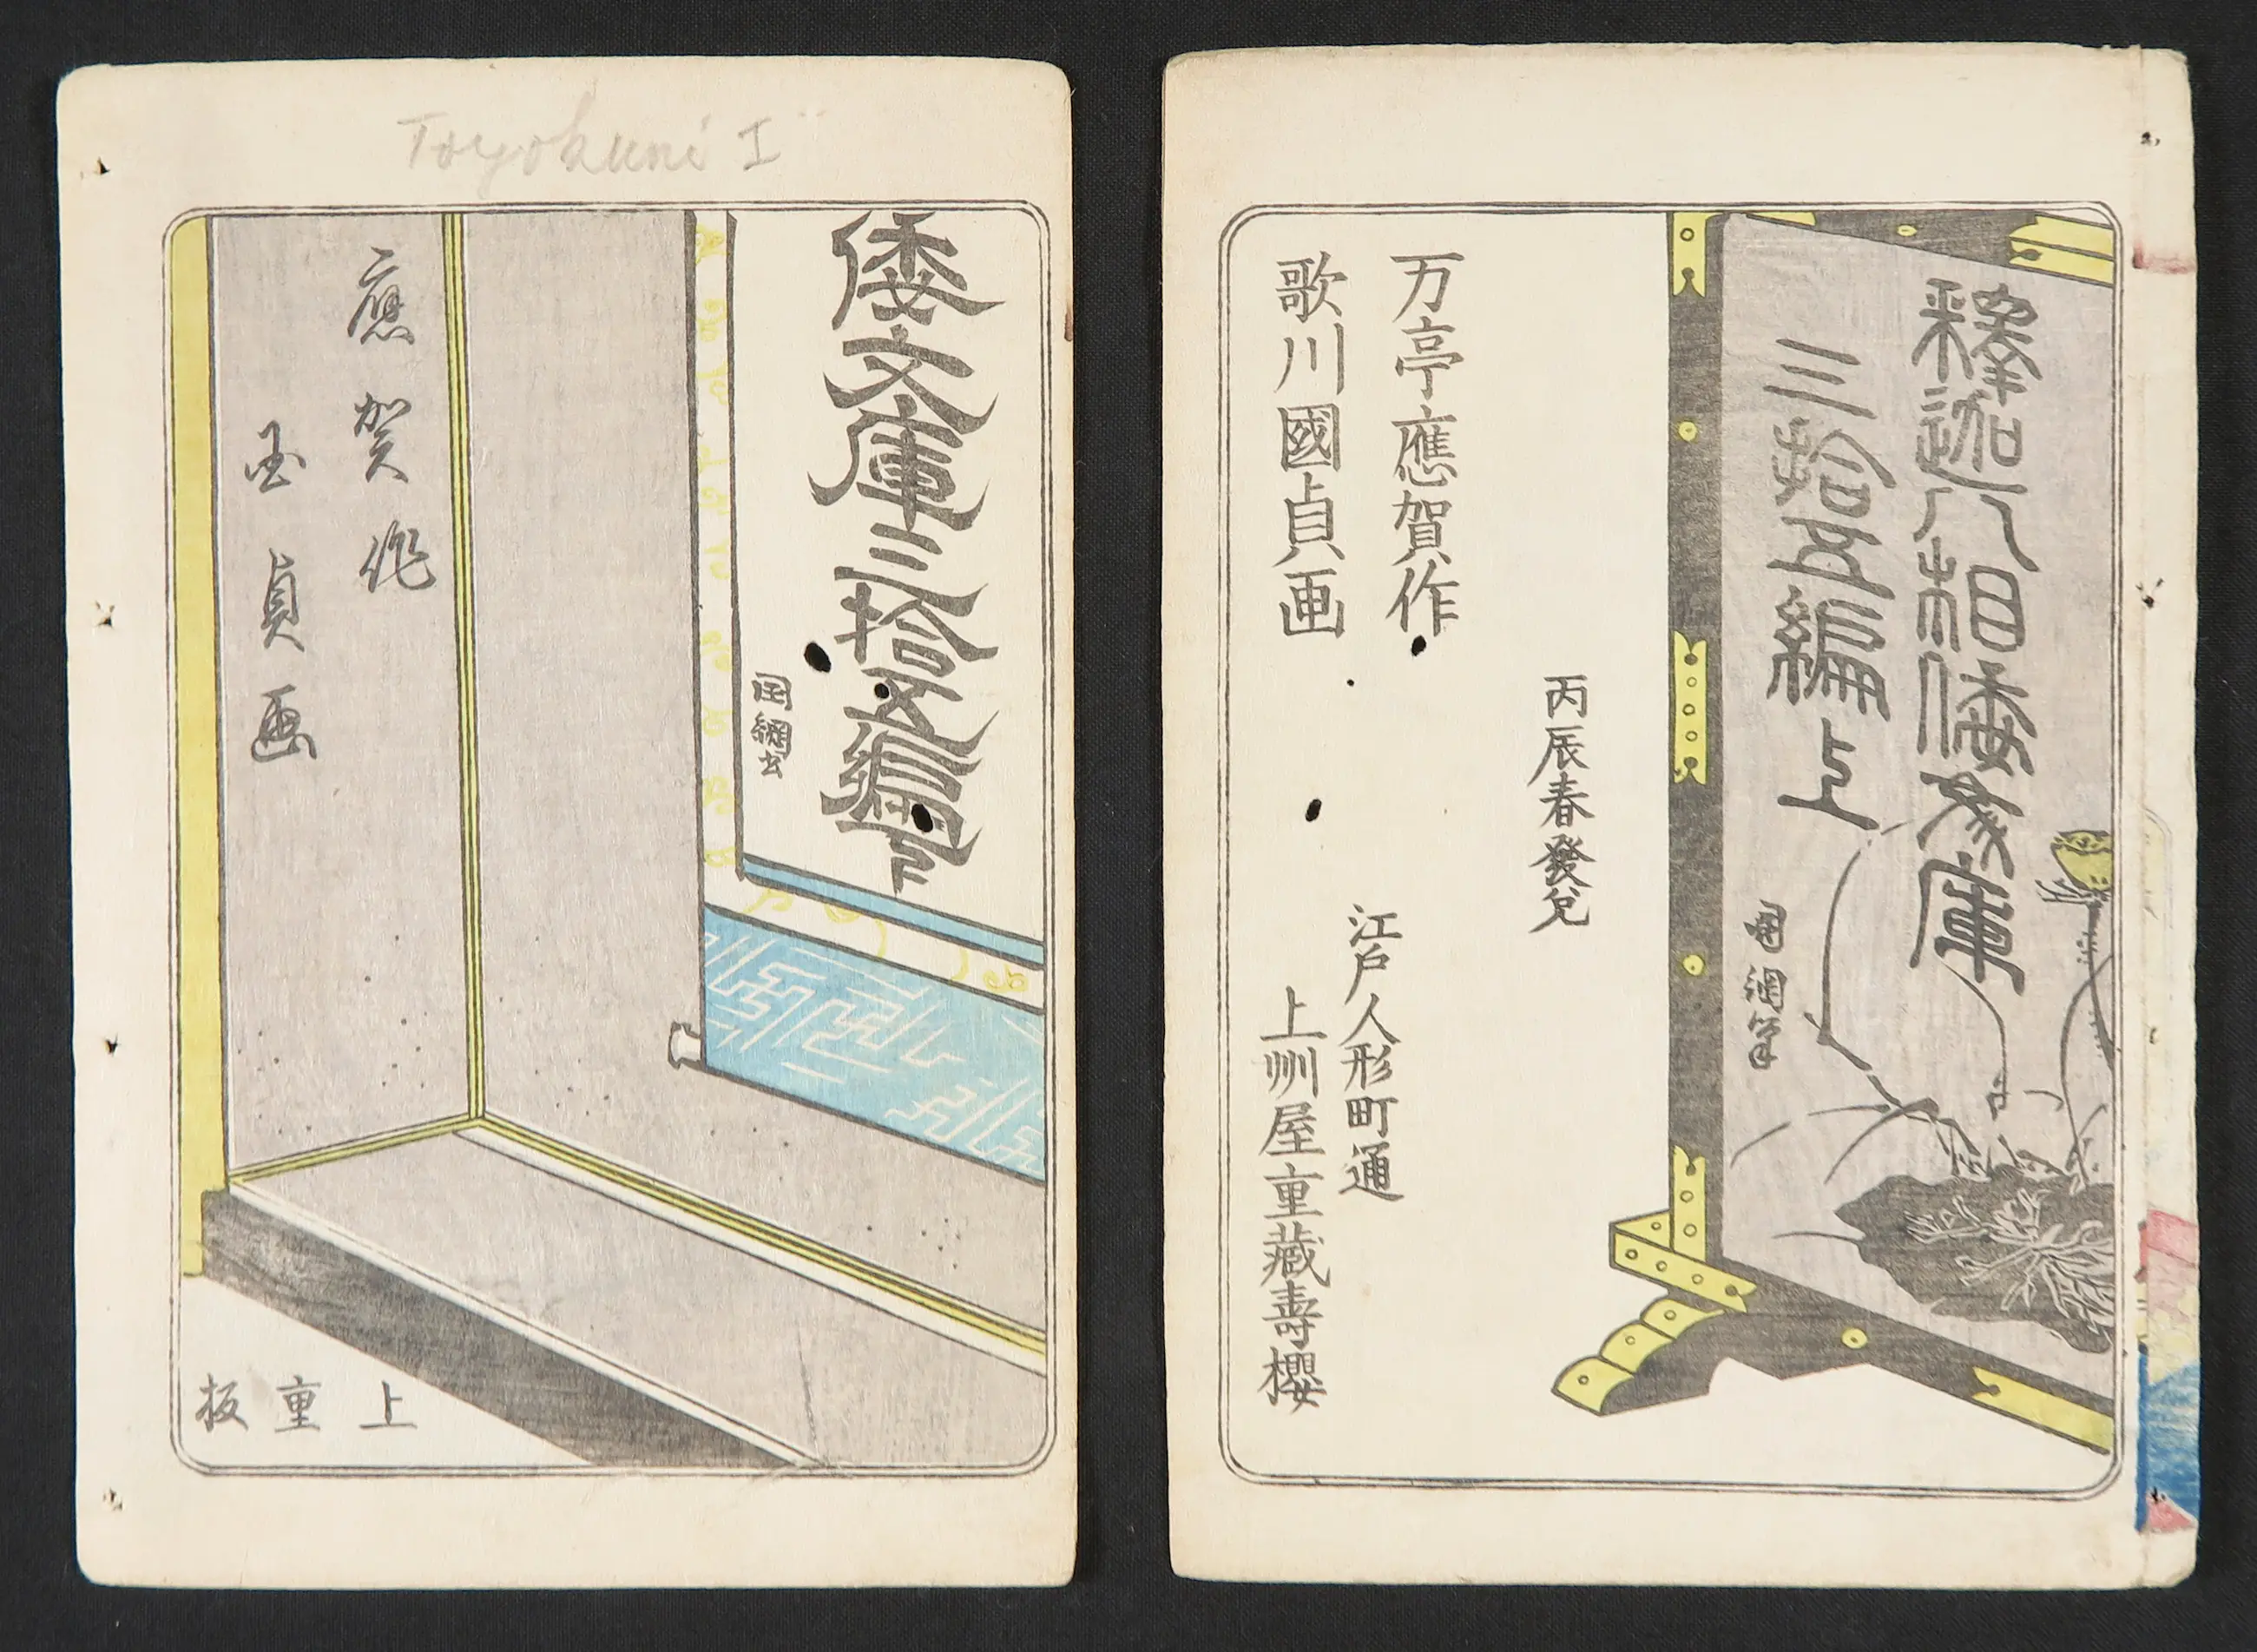 Toyokuni I
倭文庫三拾五編下
国綱書
應賀作
国貞画
上重板
釋迦八相倭文庫
三拾五編上
国綱筆
丙辰春發兌
万亭應賀作
歌川國貞画
江戸人形町通
上州屋重藏壽櫻